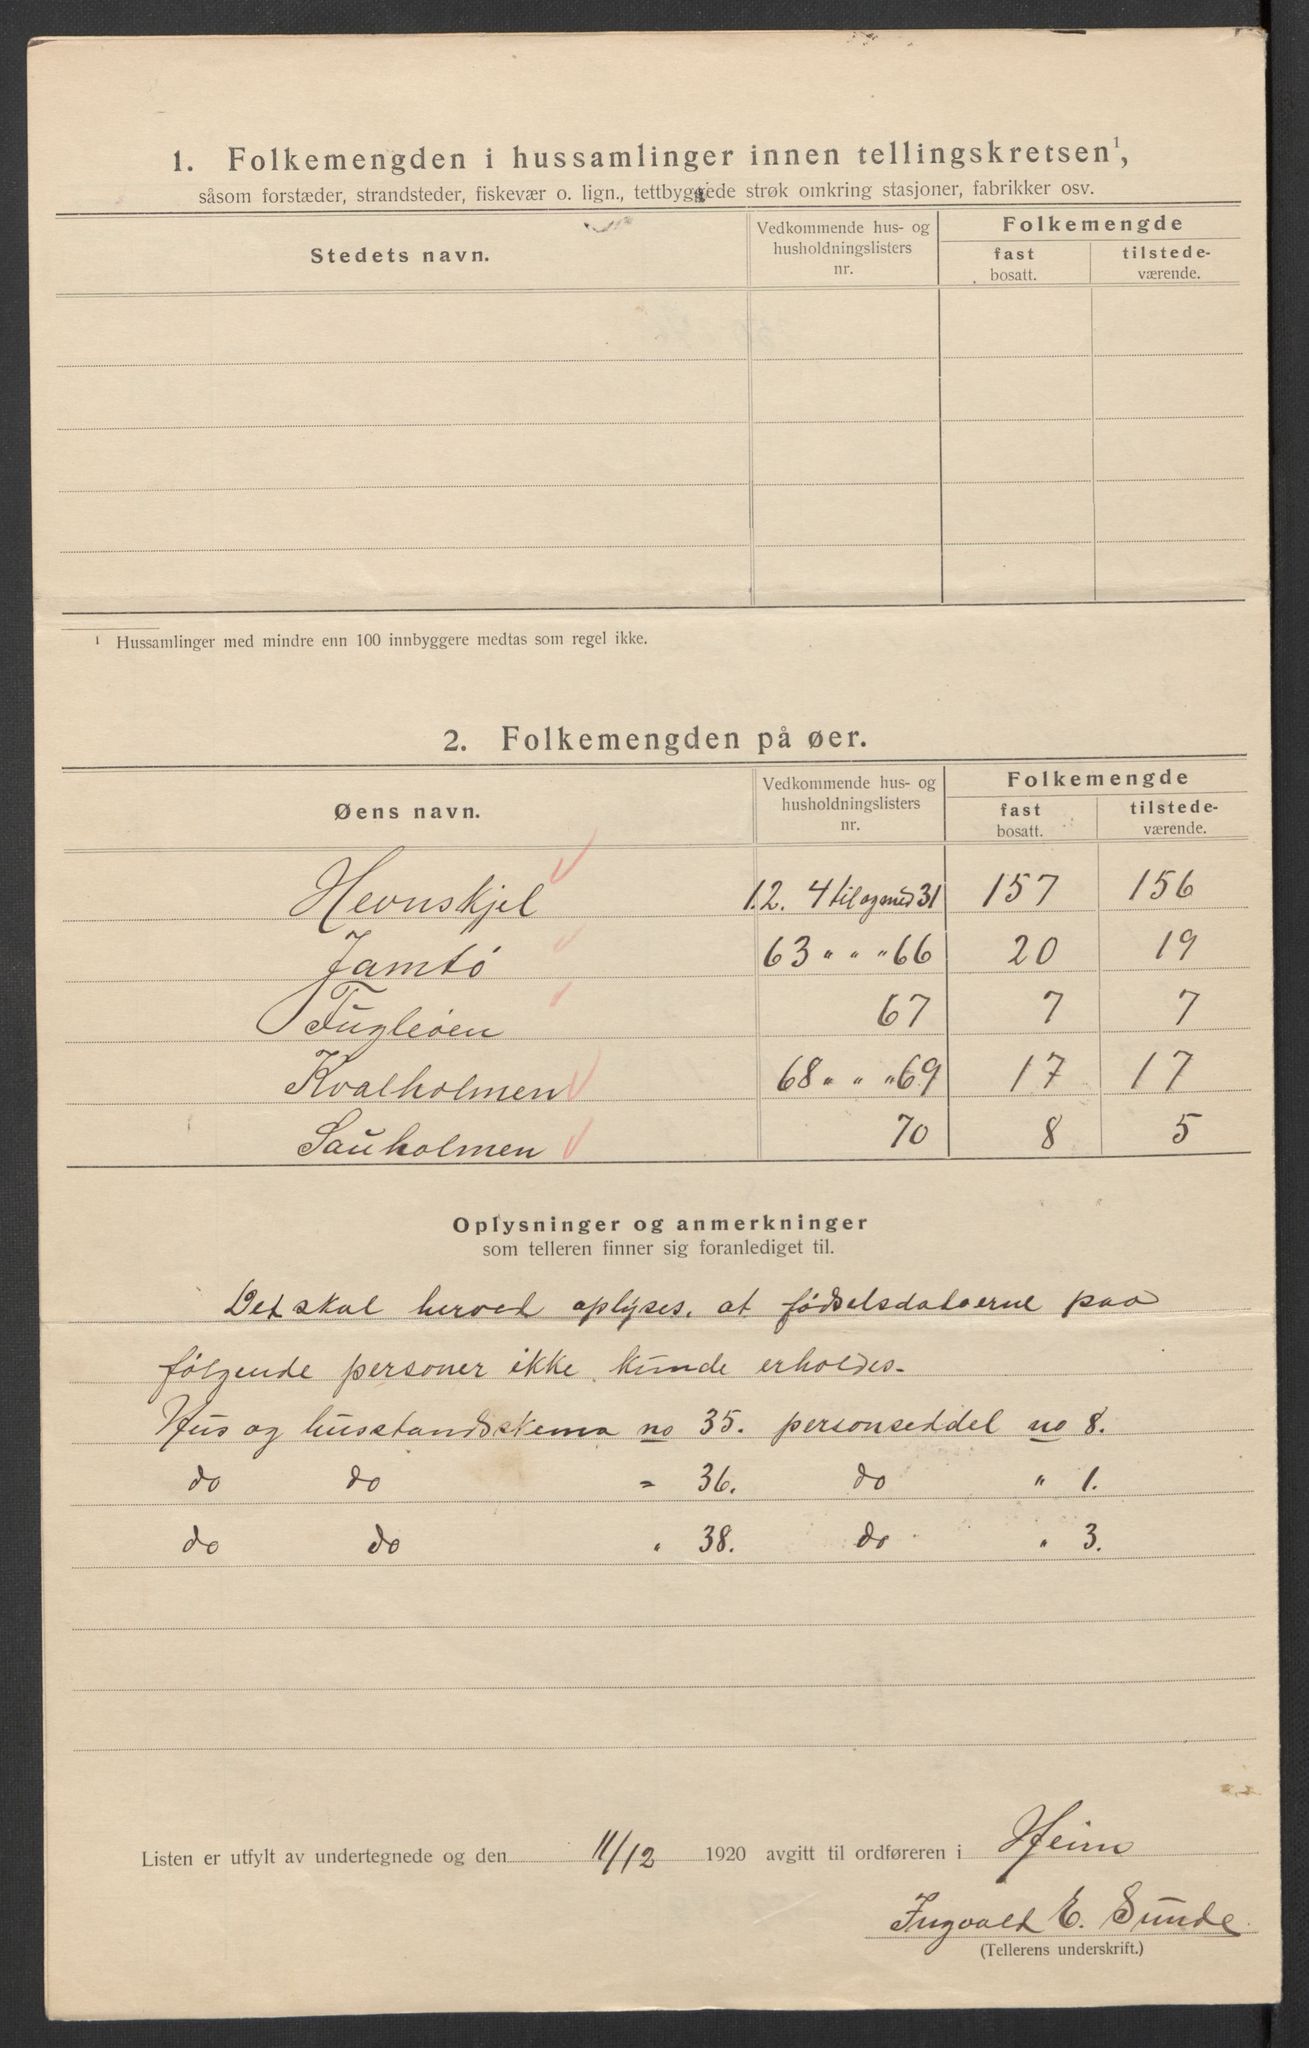 1. Folkemengden i hussamlinger innen tellingskretsen¹,
såsom forstæder, strandsteder, fiskevær o. lign., tettbyggede strøk omkring stasjoner, fabrikker osv.
Stedets navn. Vedkommende hus- og husholdningslisters nr. Folkemengde
fast bosatt. tilstede-værende.
¹ Hussamlinger med mindre enn 100 innbyggere medtas som regel ikke.
2. Folkemengden på øer.
Øens navn. Vedkommende hus- og husholdningslisters nr. Folkemengde
fast bosatt. tilstede-værende.
Hevnskjel 1.2. 4 til og med 31 157 156
Jamtö 63 " " " 66 20 19
Fugleöen 67 7 7
Kvalholmen 68 " " " 69 17 17
Sauholmen 70 8 5
Oplysninger og anmerkninger
som telleren finner sig foranlediget til.
Det skal herved oplyses, at födselsdatoerne paa
fölgende personer ikke kunde erholdes.
Hus og husstandsskema no 35. personseddel no 8.
do do " 36. do " 1.
do do " 38. do " 3.
Listen er utfylt av undertegnede og den 11/12 1920 avgitt til ordføreren i Heim
Ingvald E. Sunde
(Tellerens underskrift.)